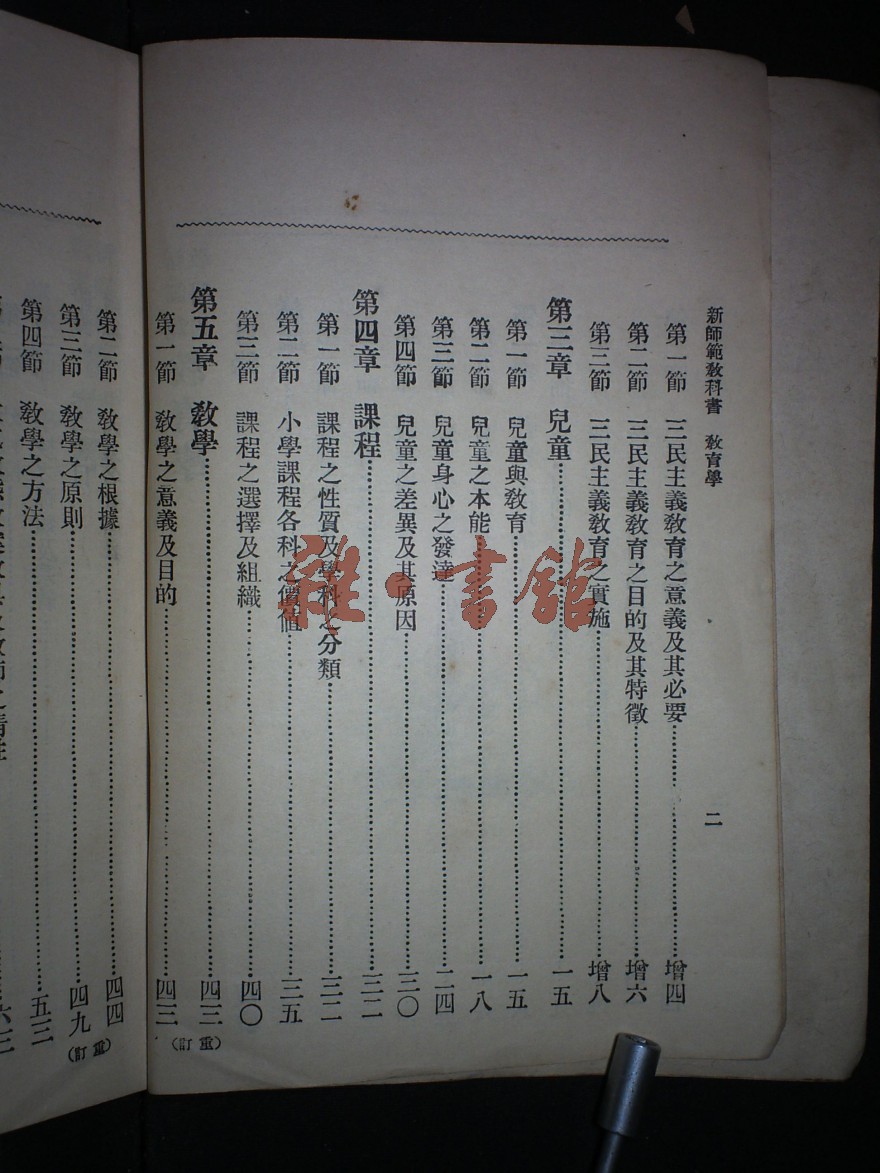 新師範敎科書　敎育學　二
第一節　三民主義敎育之意義及其必要……增四
第二節　三民主義敎育之目的及其特徵……增六
第三節　三民主義敎育之實施……增八
第三章　兒童……一五
第一節　兒童與敎育……一五
第二節　兒童之本能……一八
第三節　兒童身心之發達……二四
第四節　兒童之差異及其原因……三〇
第四章　課程……三二
第一節　課程之性質及學科之分類……三二
第二節　小學課程各科之價值……三五
第三節　課程之選擇及組織……四〇
第五章　敎學……四三
（重訂）
第一節　敎學之意義及目的……四三
第二節　敎學之根據……四四
第三節　敎學之原則……四九
（重訂）
第四節　敎學之方法……五三
雜·書館